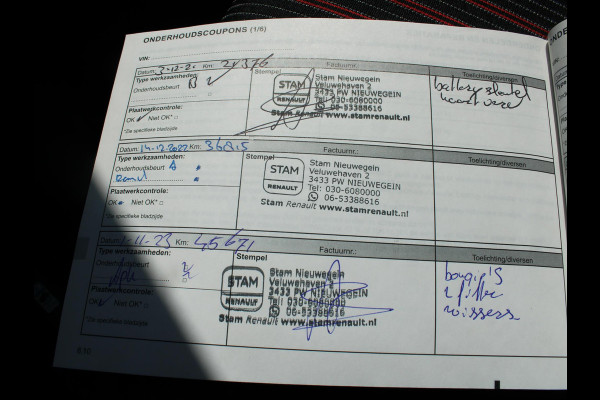 ONDERHOUDSCOUPONS (1/6)
VIN:
Datum: Km: Factuurnr.: Toelichting/diversen
Type werkzaamheden: Stempel
Onderhoudsbeurt
Plaatwerkcontrole:
OK Niet OK*
*Zie specifieke bladzijde
STAM
RENAULT
Stam Nieuwegein
Veluwehaven 2
3433 PW NIEUWEGEIN
Tel: 030-6080000
06-53388616
Stam Renault www.stamrenault.nl
Datum: 14-12-2022 Km: 36815 Factuurnr.: Toelichting/diversen
Type werkzaamheden: Stempel
Onderhoudsbeurt A
Plaatwerkcontrole:
OK Niet OK*
*Zie specifieke bladzijde
STAM
RENAULT
Stam Nieuwegein
Veluwehaven 2
3433 PW NIEUWEGEIN
Tel: 030-6080000
06-53388616
Stam Renault www.stamrenault.nl
Datum: 11-23 Km: 45671 Factuurnr.: Toelichting/diversen
Type werkzaamheden: Stempel
Onderhoudsbeurt
Plaatwerkcontrole:
OK Niet OK*
*Zie specifieke bladzijde
STAM
RENAULT
Stam Nieuwegein
Veluwehaven 2
3433 PW NIEUWEGEIN
Tel: 030-6080000
06-53388616
Stam Renault www.stamrenault.nl
bougie's
wissers